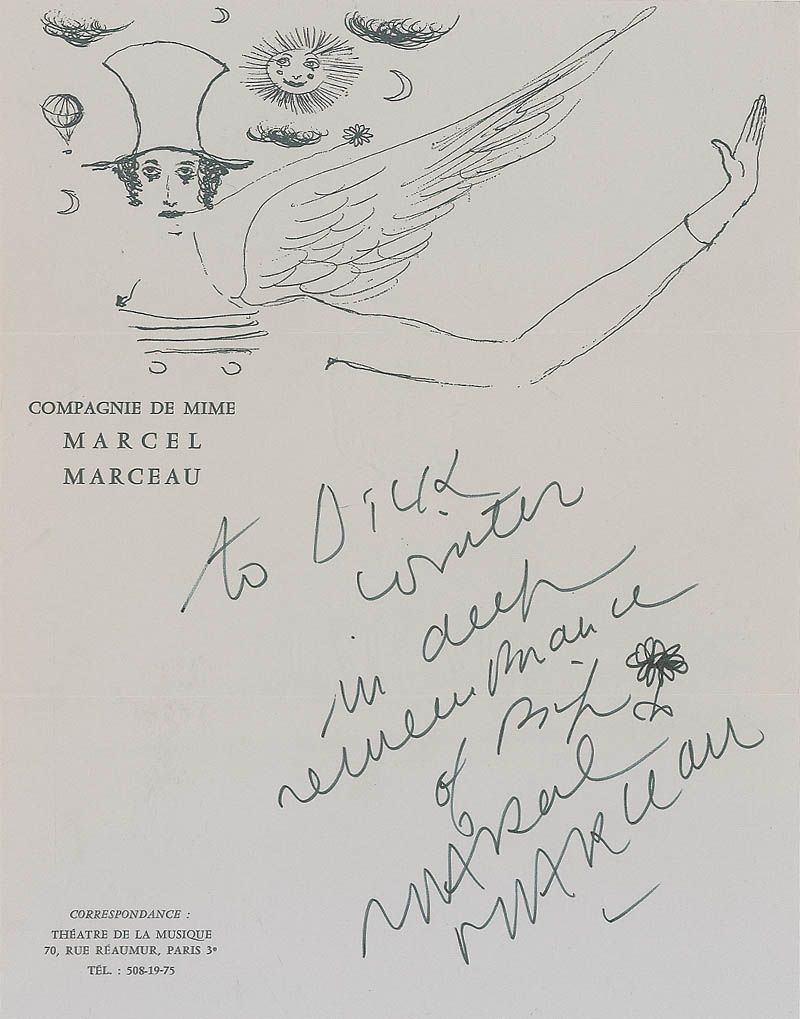 COMPAGNIE DE MIME
MARCEL
MARCEAU
to Dick
winter
in deep
remembrance
of Bip
MARcel
MARCEau
CORRESPONDANCE :
THÉATRE DE LA MUSIQUE
70, RUE RÉAUMUR, PARIS 3e
TÉL. : 508-19-75